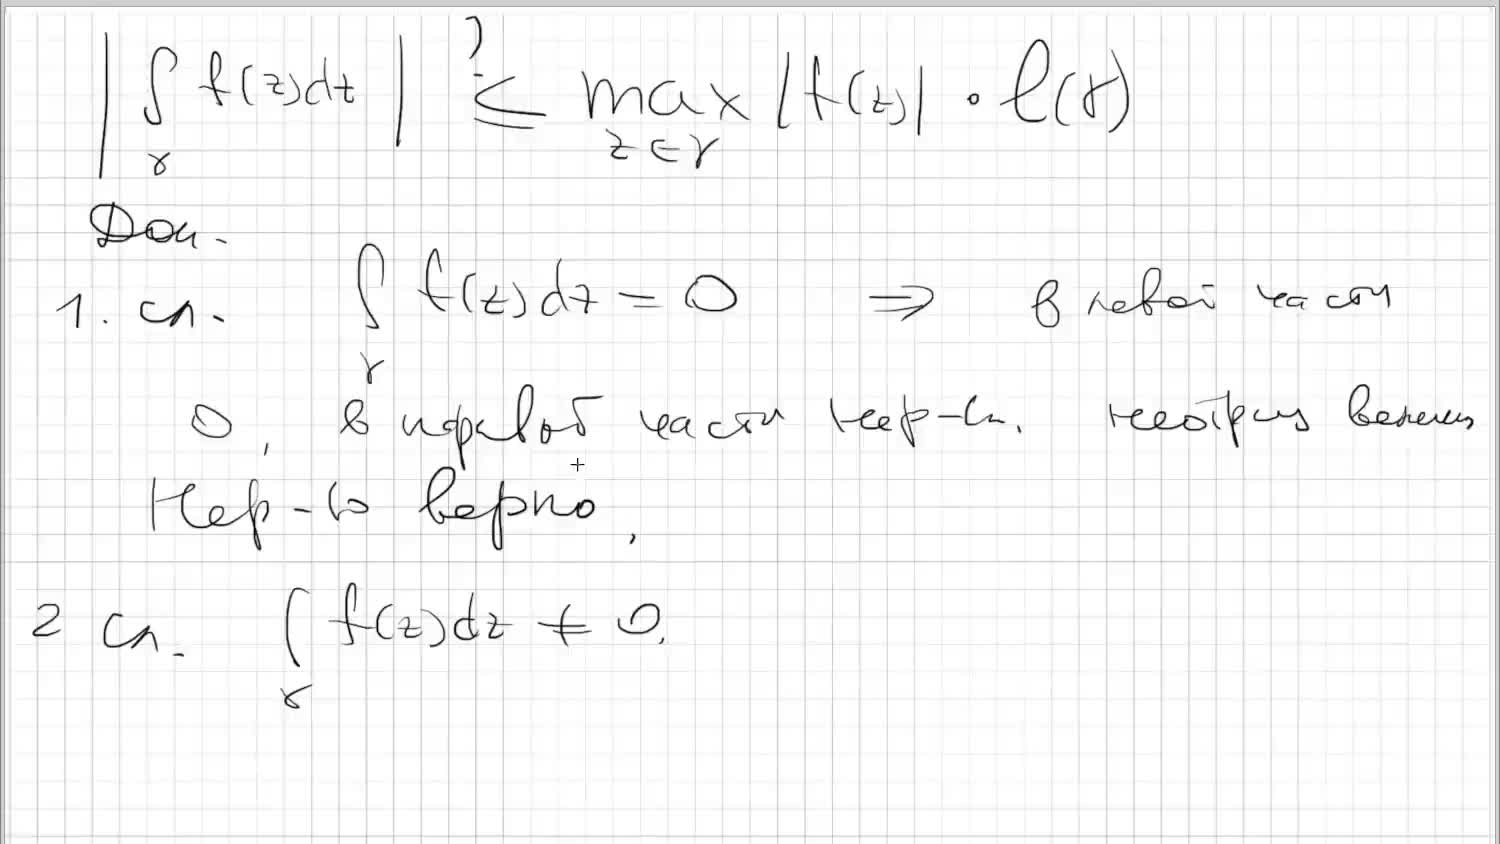 | ∫_γ f(z)dz | ≤^? max_{z∈γ} |f(z)| · l(γ)
Док.
1. сл. ∫_γ f(z)dz = 0 ⇒ в левой части
0, в правой части нер-ва. неотриц велич
Нер-во верно.
2 сл. ∫_γ f(z)dz ≠ 0.